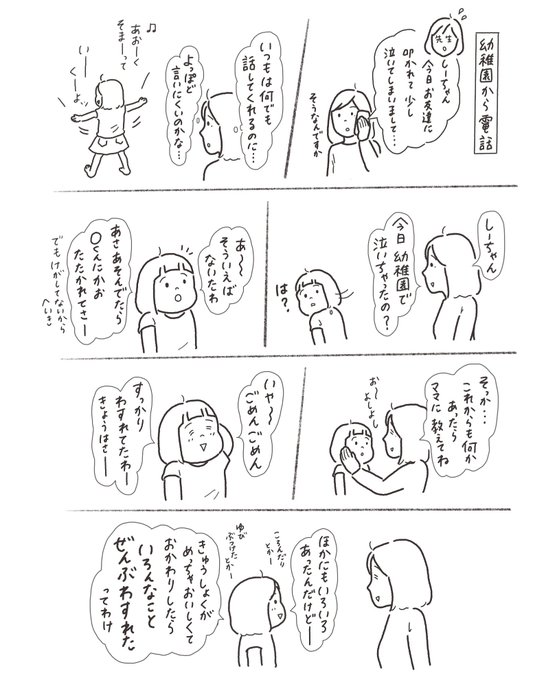 幼稚園から電話
先生
しーちゃん
今日お友達に
叩かれて少し
泣いてしまいまして…
そうなんですか
いつもは何でも
話してくれるのに…
よっぽど
言いにくいのかな…
♪
あおーく
そまーって
いー
くーよ
しーちゃん
今日幼稚園で
泣いちゃったの?
は?
あ〜〜
そういえば
ないたわ
あさあそんでたら
〇くんにかお
たたかれてさー
でもけがしてないから
へいき
そっか…
これからも何か
あったら
ママに教えてね
お〜
よしよし
いや〜
ごめんごめん
すっかり
わすれてたわー
きょうはさー
ほかにもいろいろ
あったんだけどー
ころんだり
とかー
ゆび
ぶつけた
とかー
きゅうしょくが
めっちゃおいしくて
おかわりしたら
いろんなこと
ぜんぶわすれた
ってわけ